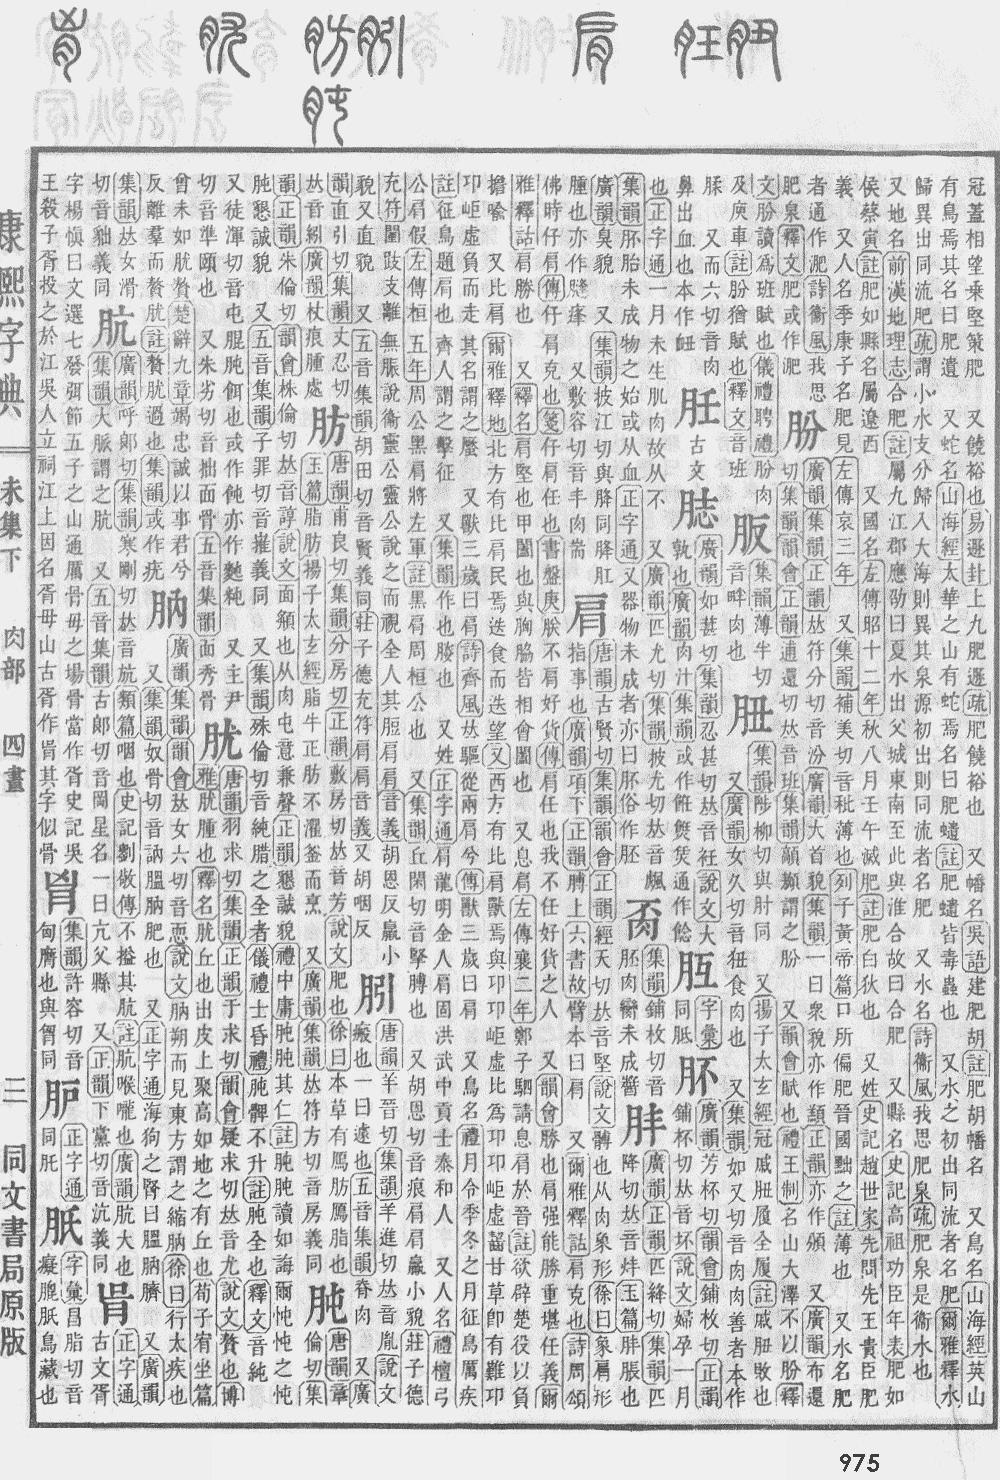 冠蓋相望乗堅策肥　又饒裕也易遯卦上九肥遯疏肥饒裕也　又幡名吳語建肥胡註肥胡幡名　又鳥名山海經英山
有鳥焉其名曰肥遺　又蛇名山海經太華之山有蛇焉名曰肥𧔥註肥𧔥皆毒蟲也　又水之初出同流者名肥爾雅釋水
歸異出同流肥疏謂小水支分歸入大海則異其泉源初出則同流者名肥　又水名詩衞風我思肥泉疏肥泉是衞水也
又地名前漢地理志合肥註屬九江郡應劭曰夏水出父城東南至此與淮合故曰合肥　又縣名史記高祖功臣年表肥如
侯蔡寅註肥如縣名屬遼西　又國名左傳昭十二年秋八月壬午滅肥註肥白狄也　又姓史記趙世家先問先王貴臣肥
義　又人名季康子名肥見左傳哀三年　又集韻補美切音秕薄也列子黃帝篇口所偏肥晉國黜之註薄也　又水名肥
者通作淝詩衞風我思
肥泉釋文肥或作淝
肦
廣韻集韻正韻𠀤符分切音汾廣韻大首貌集韻一曰衆貌亦作頒正韻亦作頒　又廣韻布還
切集韻韻會正韻逋還切𠀤音班集韻顛頒謂之肦　又韻會賦也禮王制名山大澤不以肦釋
文肦讀爲班賦也儀禮聘禮肦肉
及廋車註肦猶賦也釋文音班
䏢
集韻薄半切
音畔肉也
䏔
集韻陟柳切與肘同　又揚子太玄經冠戚䏔履全履註戚䏔敗也
又廣韻女久切音狃食肉也　又集韻如又切音肉肉善者本作
腬　又而六切音肉
鼻出血也本作衄
肚
古文
䏕
廣韻如甚切集韻忍甚切𠀤音衽說文大
孰也廣韻肉汁集韻或作飪䭃烎通作餁
䏓
字彙
同胝
肧
廣韻芳杯切韻會鋪枚切正韻
鋪杯切𠀤音坏說文婦孕一月
也正字通一月未生肌肉故从不　又廣韻匹尤切集韻披尤切𠀤音飊
集韻肧胎未成物之始或从血正字通又器物未成者亦曰肧俗作胚
肩
唐韻古賢切集韻韻會正韻經天切𠀤音堅說文髆也从肉象形徐曰象肩形
指事也廣韻項下正韻膊上六書故臂本曰肩　又爾雅釋詁肩克也詩周頌
佛時仔肩傳仔肩克也箋仔肩任也書盤庚朕不肩好貨傳肩任也我不任好貨之人　又韻會勝也肩强能勝重堪任義爾
雅釋詁肩勝也　又釋名肩堅也甲闔也與胸脇皆相會闔也　又息肩左傳襄二年鄭子駟請息肩於晉註欲辟楚役以負
擔喻　又比肩爾雅釋地北方有比肩民焉迭食而迭望又西方有比肩獸焉與卭卭岠虛比爲卭卭岠虛齧甘草卽有難卭
卭岠虛負而走其名謂之蟨　又獸三歲曰肩詩齊風𠀤驅從兩肩兮傳獸三歲曰肩　又鳥名禮月令季冬之月征鳥厲疾
註征鳥題肩也齊人謂之擊征　又集韻作也䐡也　又姓正字通肩龍明金人肩固洪武中貢士泰和人　又人名禮檀弓
公肩假左傳桓五年周公黑肩將左軍註黑肩周桓公也　又集韻丘閑切音堅膊也　又胡恩切音痕肩肩羸小貌莊子德
充符闉跂支離無脤說衞靈公靈公說之而視全人其脰肩肩音義胡恩反羸小
貌又直貌　又五音集韻胡田切音賢義同莊子德充符肩肩音義又胡咽反
䏖
唐韻羊晉切集韻羊進切𠀤音胤說文
瘢也一曰遽也五音集韻脊肉　又廣
韻面引切集韻丈忍切
𠀤音紖廣韻杖痕腫處
肪
唐韻甫良切集韻分房切正韻敷房切𠀤音芳說文肥也徐曰本草有鴈肪鴈脂也
玉篇脂肪揚子太玄經脂牛正肪不濯釜而烹　又廣韻集韻𠀤符方切音房義同
肫
唐韻章
倫切集
韻正韻朱倫切韻會株倫切𠀤音諄說文面頯也从肉屯意兼聲正韻懇誠貌禮中庸肫肫其仁註肫肫讀如誨爾忳忳之忳
肫懇誠貌　又五音集韻子罪切音嶊義同　又集韻殊倫切音純腊之全者儀禮士昏禮肫髀不升註肫全也釋文音純
又徒渾切音屯䐊肫餌也或作飩亦作䴷䊚　又主尹
切音準頣也　又朱劣切音拙面骨五音集韻面秀骨
肬
唐韻羽求切集韻正韻于求切韻會疑求切𠀤音尤說文贅也博
雅肬腫也釋名肬丘也出皮上聚高如地之有丘也荀子宥坐篇
曾未如肬贅楚辭九章竭忠誠以事君兮
反離羣而贅肬註贅肬過也集韻或作疣
肭
廣韻集韻韻會𠀤女六切音恧說文肭朔而見東方謂之縮肭徐曰行太疾也
又集韻奴骨切音訥膃肭肥也　又正字通海狗之腎曰膃肭臍　又廣韻
集韻𠀤女滑
切音豽義同
肮
廣韻呼郞切集韻寒剛切𠀤音航類篇咽也史記劉敬傳不搤其肮註肮喉嚨也廣韻肮大也
集韻大脈謂之肮　又五音集韻古郞切音岡星名一曰亢父縣　又正韻下黨切音沆義同
正字通
古文胥
字楊愼曰文選七發弭節五子之山通厲骨母之場骨當作胥史記吳
王殺子胥投之於江吳人立祠江上因名胥母山古胥作䏏其字似骨
肻
集韻許容切音
匈膺也與胷同
正字通
同肶
字彙昌脂切音
癡䏶胝鳥藏也
康熙字典
未集下　肉部　四畫
三
同文書局原版
975